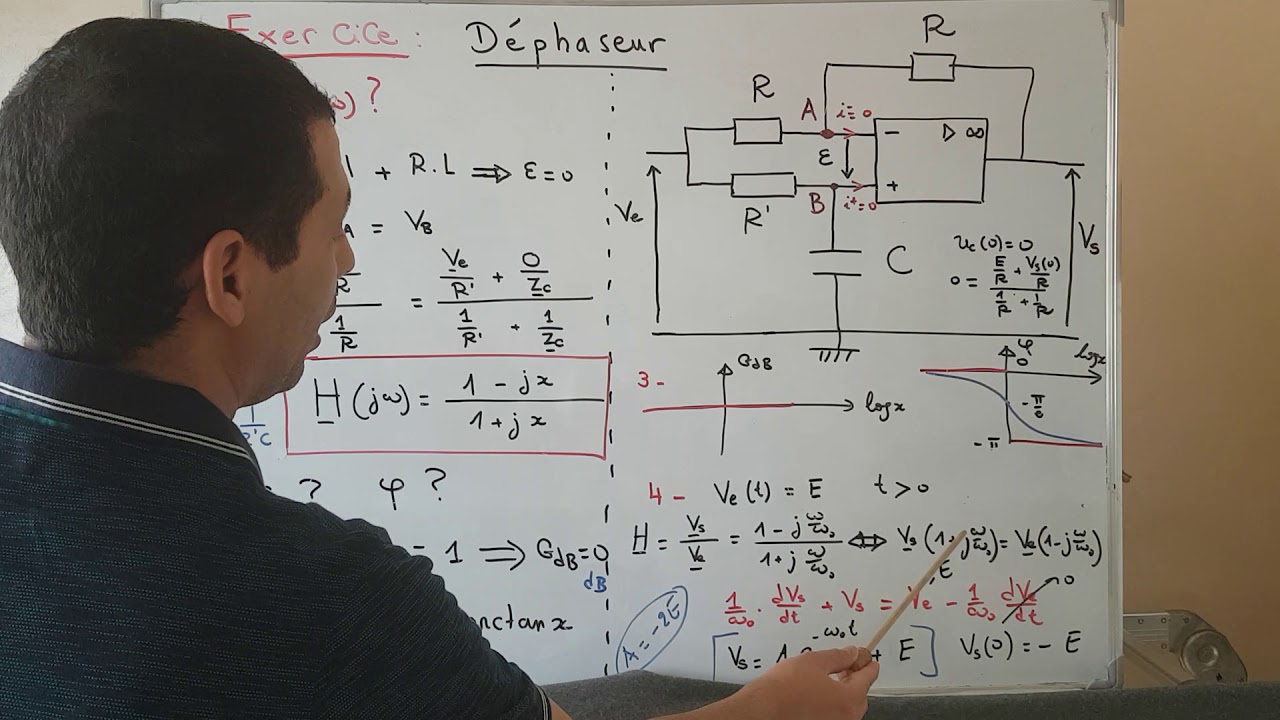 Exercice : Déphaseur
ω) ?
+ R.L ⟹ ε=0
A = V_B
R/(1/R) = (Ve/R' + 0/Zc)/(1/R' + 1/Zc)
H(jω) = (1 - jx)/(1 + jx)
1/R'C
? φ ?
1 ⟹ GdB=0
dB
arctan x
R
R
A
i⁻=0
- ▷ ∞
ε
Ve
R'
B
i⁺=0
+
C
Vs
uc(0)=0
0 = (E/R + Vs(0)/R)/(1/R + 1/R)
3-
GdB
logx
φ
0
logx
-π/2
-π
4- Ve(t) = E t>0
H = Vs/Ve = (1 - j ω/ω₀)/(1 + j ω/ω₀) ⟺ Vs(1+j ω/ω₀) = Ve(1-j ω/ω₀)
E
0
1/ω₀ . dVs/dt + Vs = Ve - 1/ω₀ dVe/dt
A = -2E
[Vs = A e -ω₀t + E] Vs(0) = - E